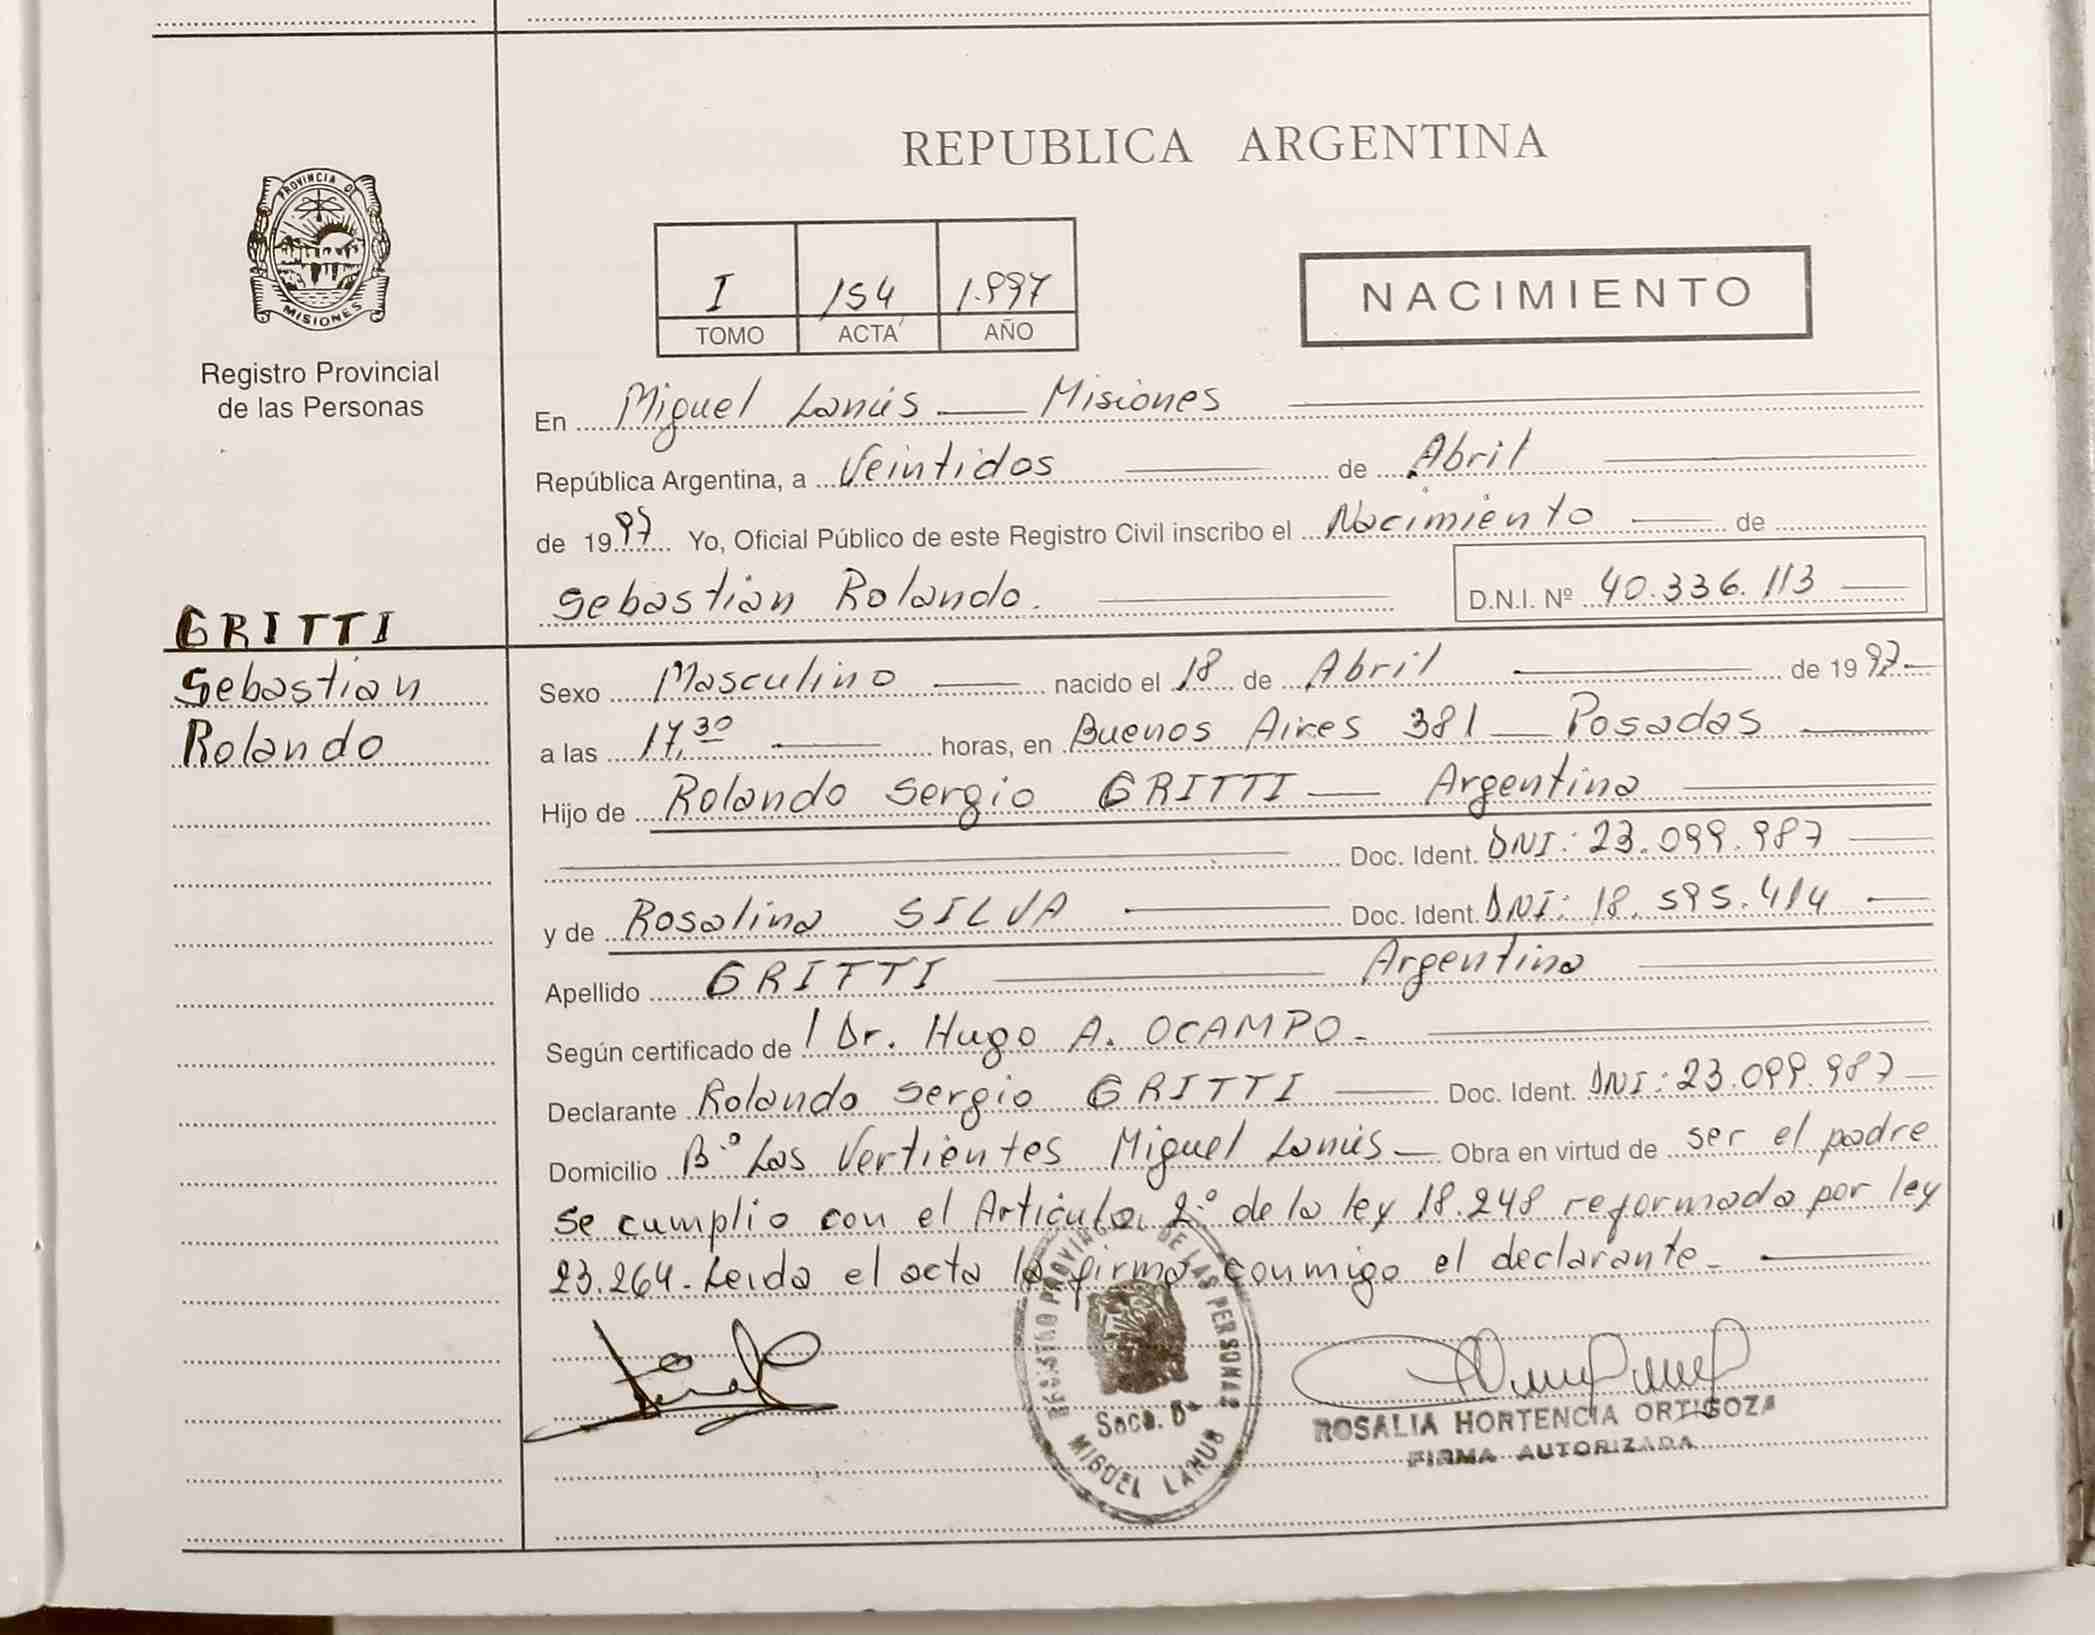 REPUBLICA ARGENTINA
PROVINCIA DE
MISIONES
Registro Provincial
de las Personas
I 154 1.997
TOMO ACTA AÑO
NACIMIENTO
En Miguel Lanús Misiones
República Argentina, a Veintidos de Abril
de 1997 Yo, Oficial Público de este Registro Civil inscribo el Nacimiento de
Sebastian Rolando. D.N.I. Nº 40.336.113
GRITTI
Sebastian
Rolando
Sexo Masculino nacido el 18 de Abril de 1997.
a las 17,30 horas, en Buenos Aires 381 Posadas
Hijo de Rolando Sergio GRITTI Argentina
Doc. Ident. DNI: 23.099.987
y de Rosalina SILVA Doc. Ident. DNI: 18.595.414
Apellido GRITTI Argentina
Según certificado de Dr. Hugo A. OCAMPO.
Declarante Rolando Sergio GRITTI Doc. Ident. DNI: 23.099.987
Domicilio B.º Las Vertientes Miguel Lanús Obra en virtud de ser el padre
se cumplio con el Articulo 2.º de la ley 18.248 reformada por ley
23.264. Leida el acta la firma conmigo el declarante.
REGISTRO PROVINCIAL DE LAS PERSONAS
MIGUEL LANUS
ROSALIA HORTENCIA ORTIGOZA
FIRMA AUTORIZADA